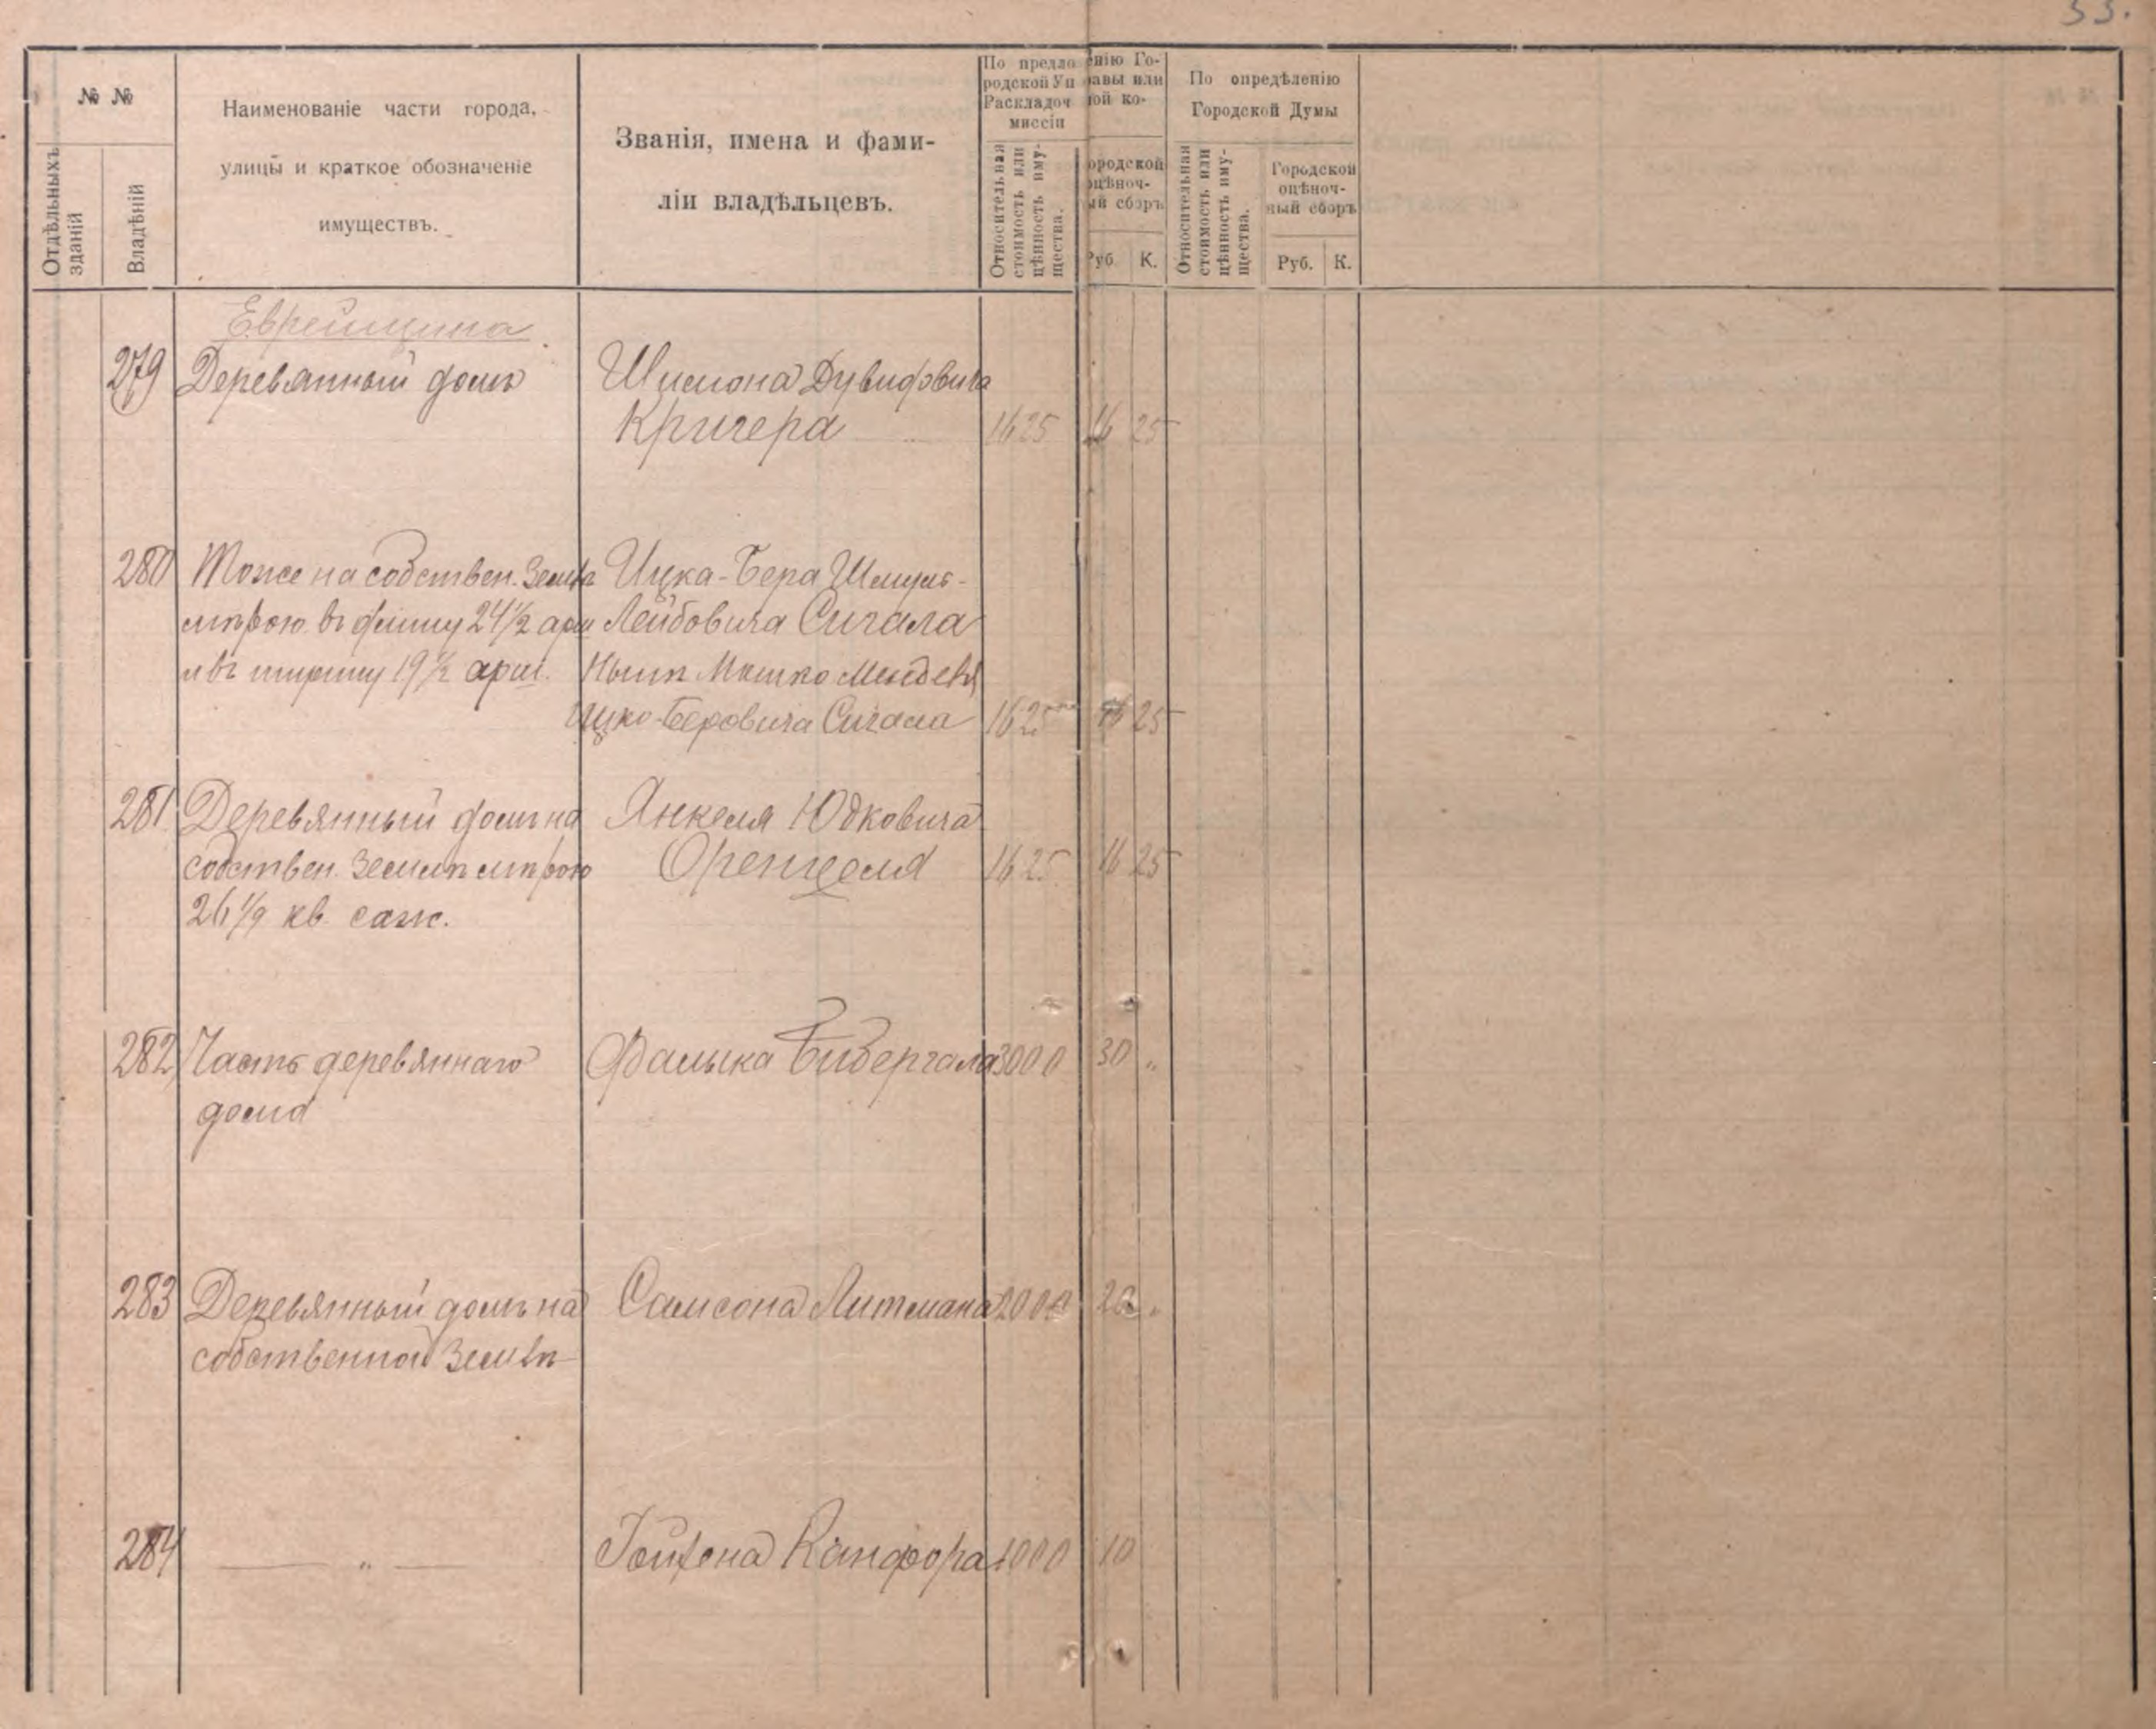 33.
№ №
Отдѣльныхъ зданій
Владѣній
Наименованіе части города,
улицы и краткое обозначеніе
имуществъ.
Званія, имена и фами-
ліи владѣльцевъ.
По предло
родской Уп
Раскладоч
миссіи
енію Го-
авы или
ой ко-
Относительная стоимость или цѣнность иму-щества.
ородской
оцѣноч-
ый сборъ
Руб. К.
По опредѣленію
Городской Думы
Относительная стоимость или цѣнность иму-щества.
Городской
оцѣноч-
ный сборъ
Руб. К.
Еврейщина
279 Деревянный домъ Шимона Дувидовича
Кричера 1625 16 25
280 Тоже на собствен. землѣ Ицка-Бера Шмуль-
мѣрою въ длину 24 1/2 арш Лейбовича Сигала
и въ ширину 19 1/2 арш. Нынѣ Мошко Мендель
Ицко-Беровича Сигала 1625 16 25
281 Деревянный домъ на Янкеля Юдковича
собствен. землѣ мѣрою Оренцеля 1625 16 25
26 1/9 кв. саж.
282 Часть деревяннаго Фалька Бибергала 3000 30 "
дома
283 Деревянный домъ на Самсона Литмана 2000 20 "
собственной землѣ
284 — " — Канфора 1000 10